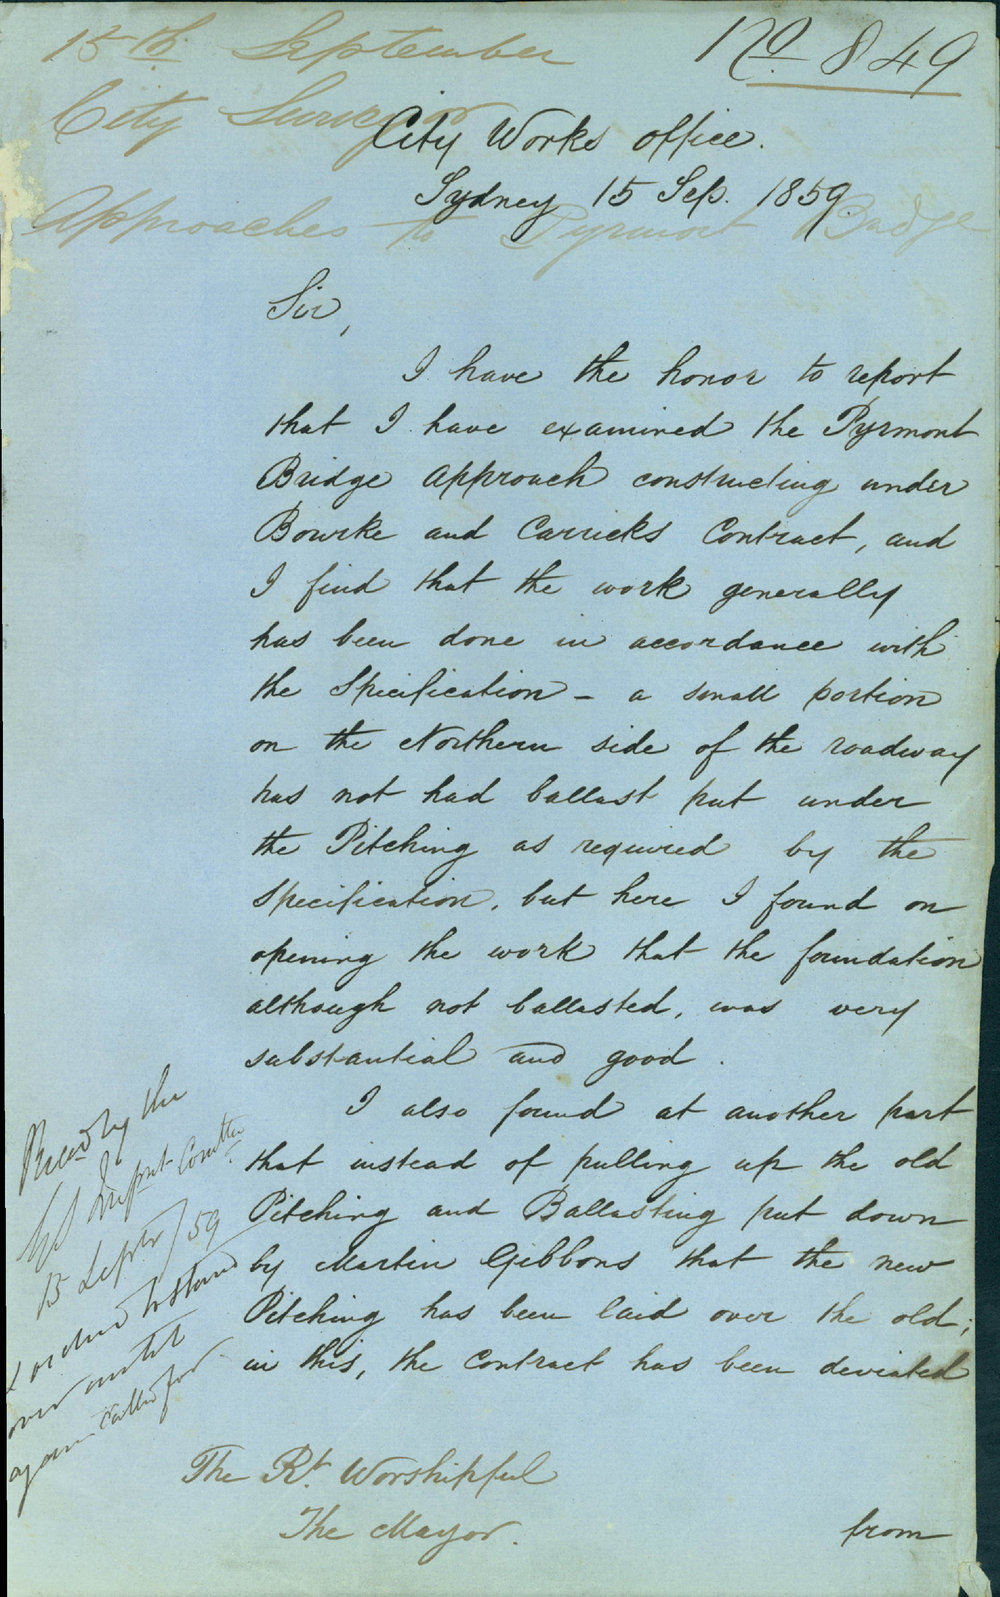 15th. September
No 849
City Surveyor
City Works office.
Sydney 15 Sep. 1859.
Approaches to Pyrmont Bridge
Sir,
I have the honor to report
that I have examined the Pyrmont
Bridge Approach constructing under
Bourke and Carricks Contract, and
I find that the work generally
has been done in accordance with
the Specification - a small portion
on the Northern side of the roadway
has not had ballast put under
the Pitching as required by the
Specification, but here I found on
opening the work that the foundation
although not ballasted, was very
substantial and good.
I also found at another part
that instead of pulling up the old
Pitching and Ballasting put down
by Martin Gibbons that the new
Pitching has been laid over the old;
in this, the Contract has been deviated
from
The Rt. Worshipful
The Mayor.
Read by the
Impnt Comttee
15 Septr/59
& ordered to stand
over until
again called for